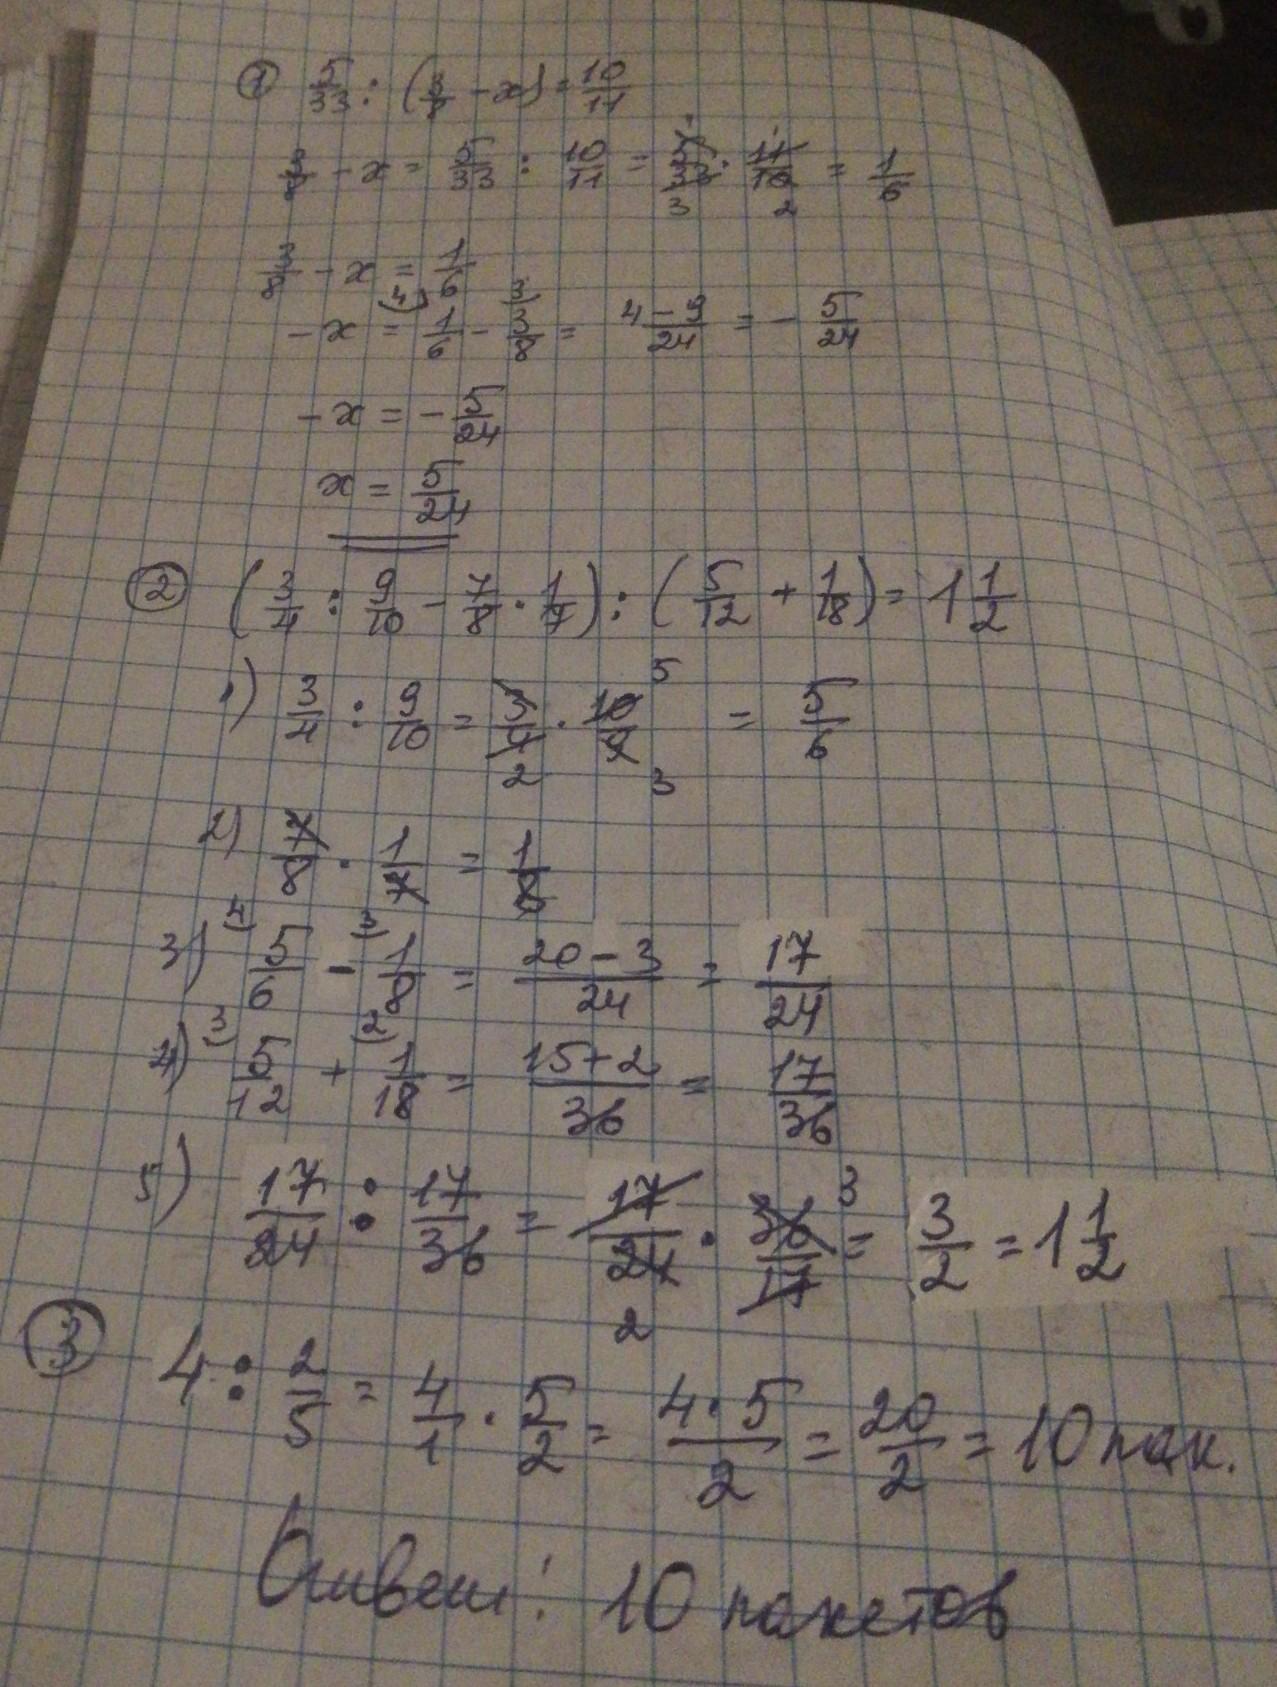 ① 5/33 : (3/8 - x) = 10/11
3/8 - x = 5/33 : 10/11 = 5/33 · 11/10 = 1/6
3 2
3/8 - x = 1/6
- x = (4) 1/6 - 3 3/8 = 4-9/24 = - 5/24
- x = - 5/24
x = 5/24
② (3/4 : 9/10 - 7/8 · 1/7) : (5/12 + 1/18) = 1 1/2
1) 3/4 : 9/10 = 3/4 · 10/9 = 5/6
5 2 3
2) 7/8 · 1/7 = 1/8
3) (4) 5/6 - (3) 1/8 = 20-3/24 = 17/24
4) (3) 5/12 + (2) 1/18 = 15+2/36 = 17/36
5) 17/24 : 17/36 = 17/24 · 36/17 = 3/2 = 1 1/2
3 2
③ 4 : 2/5 = 4/1 · 5/2 = 4·5/2 = 20/2 = 10 пак.
Ответ: 10 пакетов